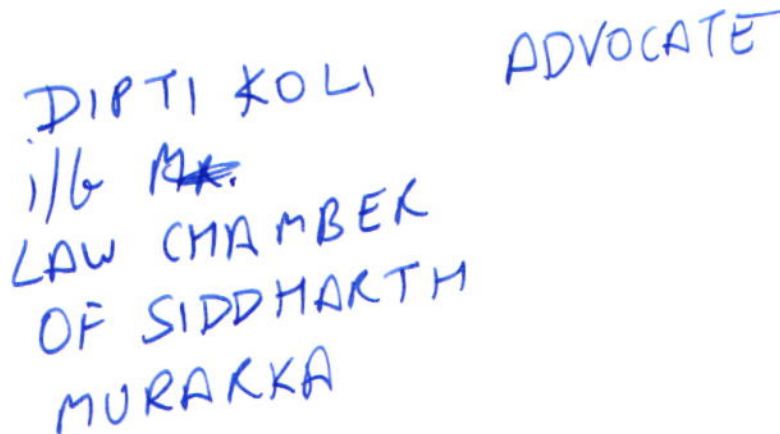 DIPTI KOLI ADVOCATE
i/b
LAW CHAMBER
OF SIDDHARTH
MURARKA